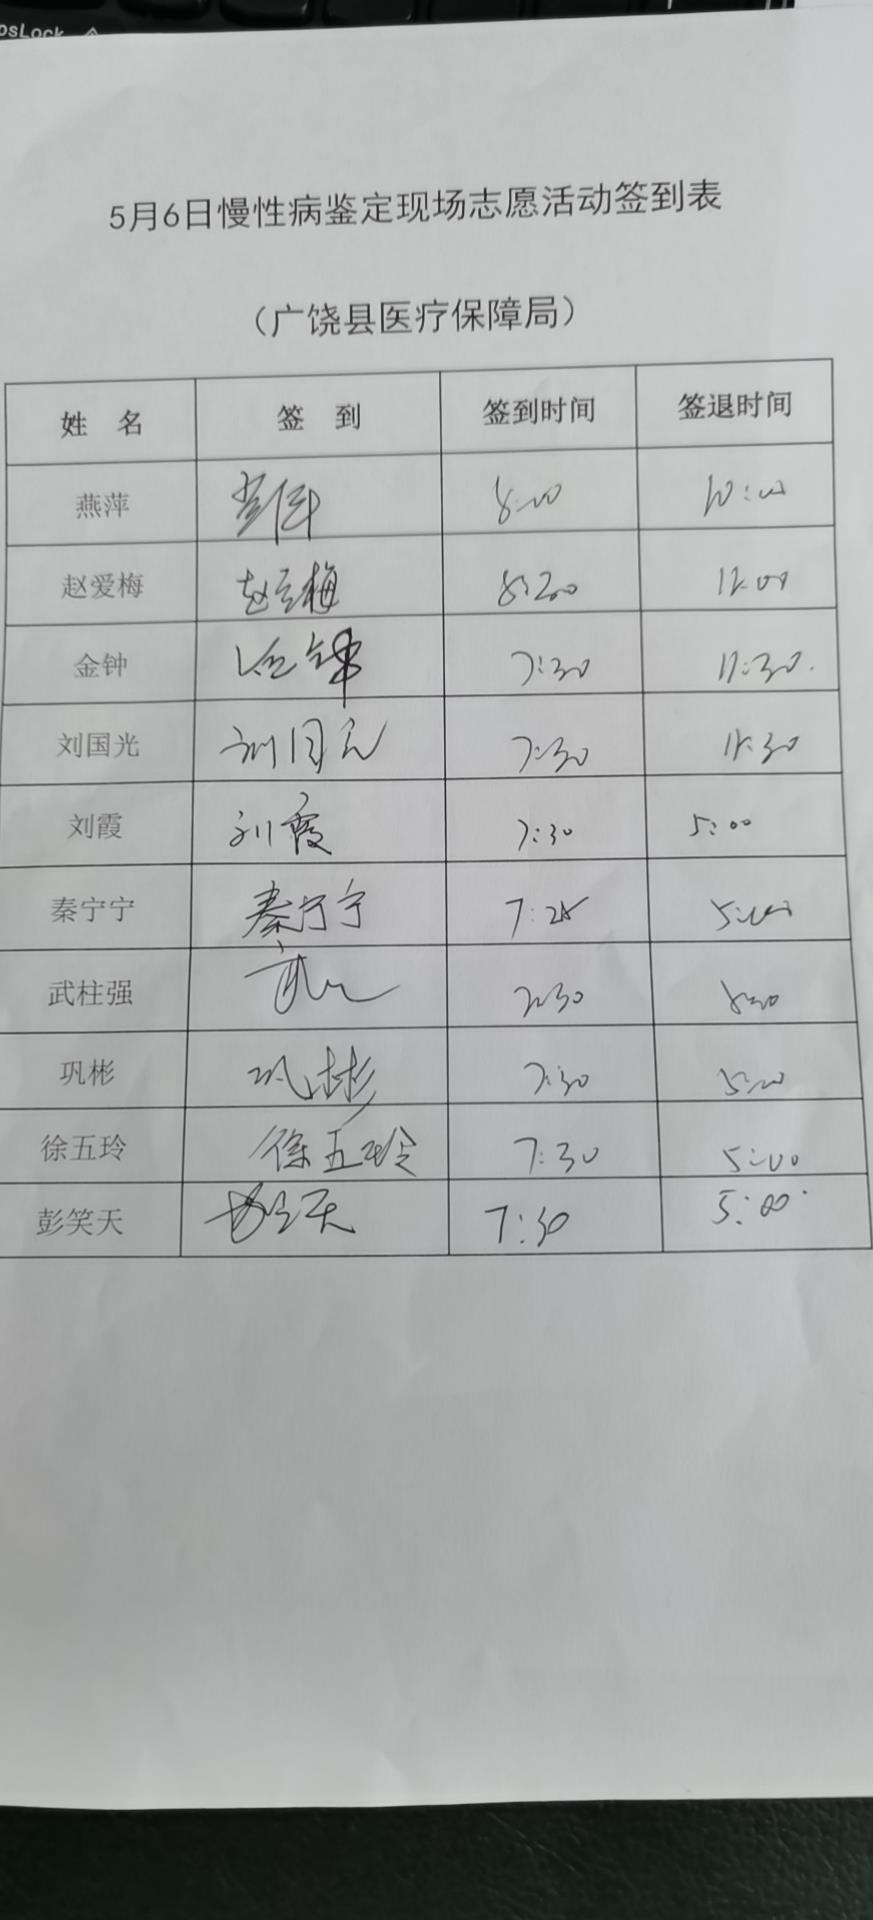 osLock
5月6日慢性病鉴定现场志愿活动签到表
（广饶县医疗保障局）
姓 名 签 到 签到时间 签退时间
燕萍 8:00 10:00
赵爱梅 赵爱梅 8:200
金钟 金钟 7:30 11:30.
刘国光 刘国光 7:30 11:30
刘霞 刘霞 7:30 5:00
秦宁宁 秦宁宁 7:25 5:00
武柱强 7:30
巩彬 巩彬 7:30 5:00
徐五玲 徐五玲 7:30 5:00
彭笑天 彭笑天 7:30 5:00